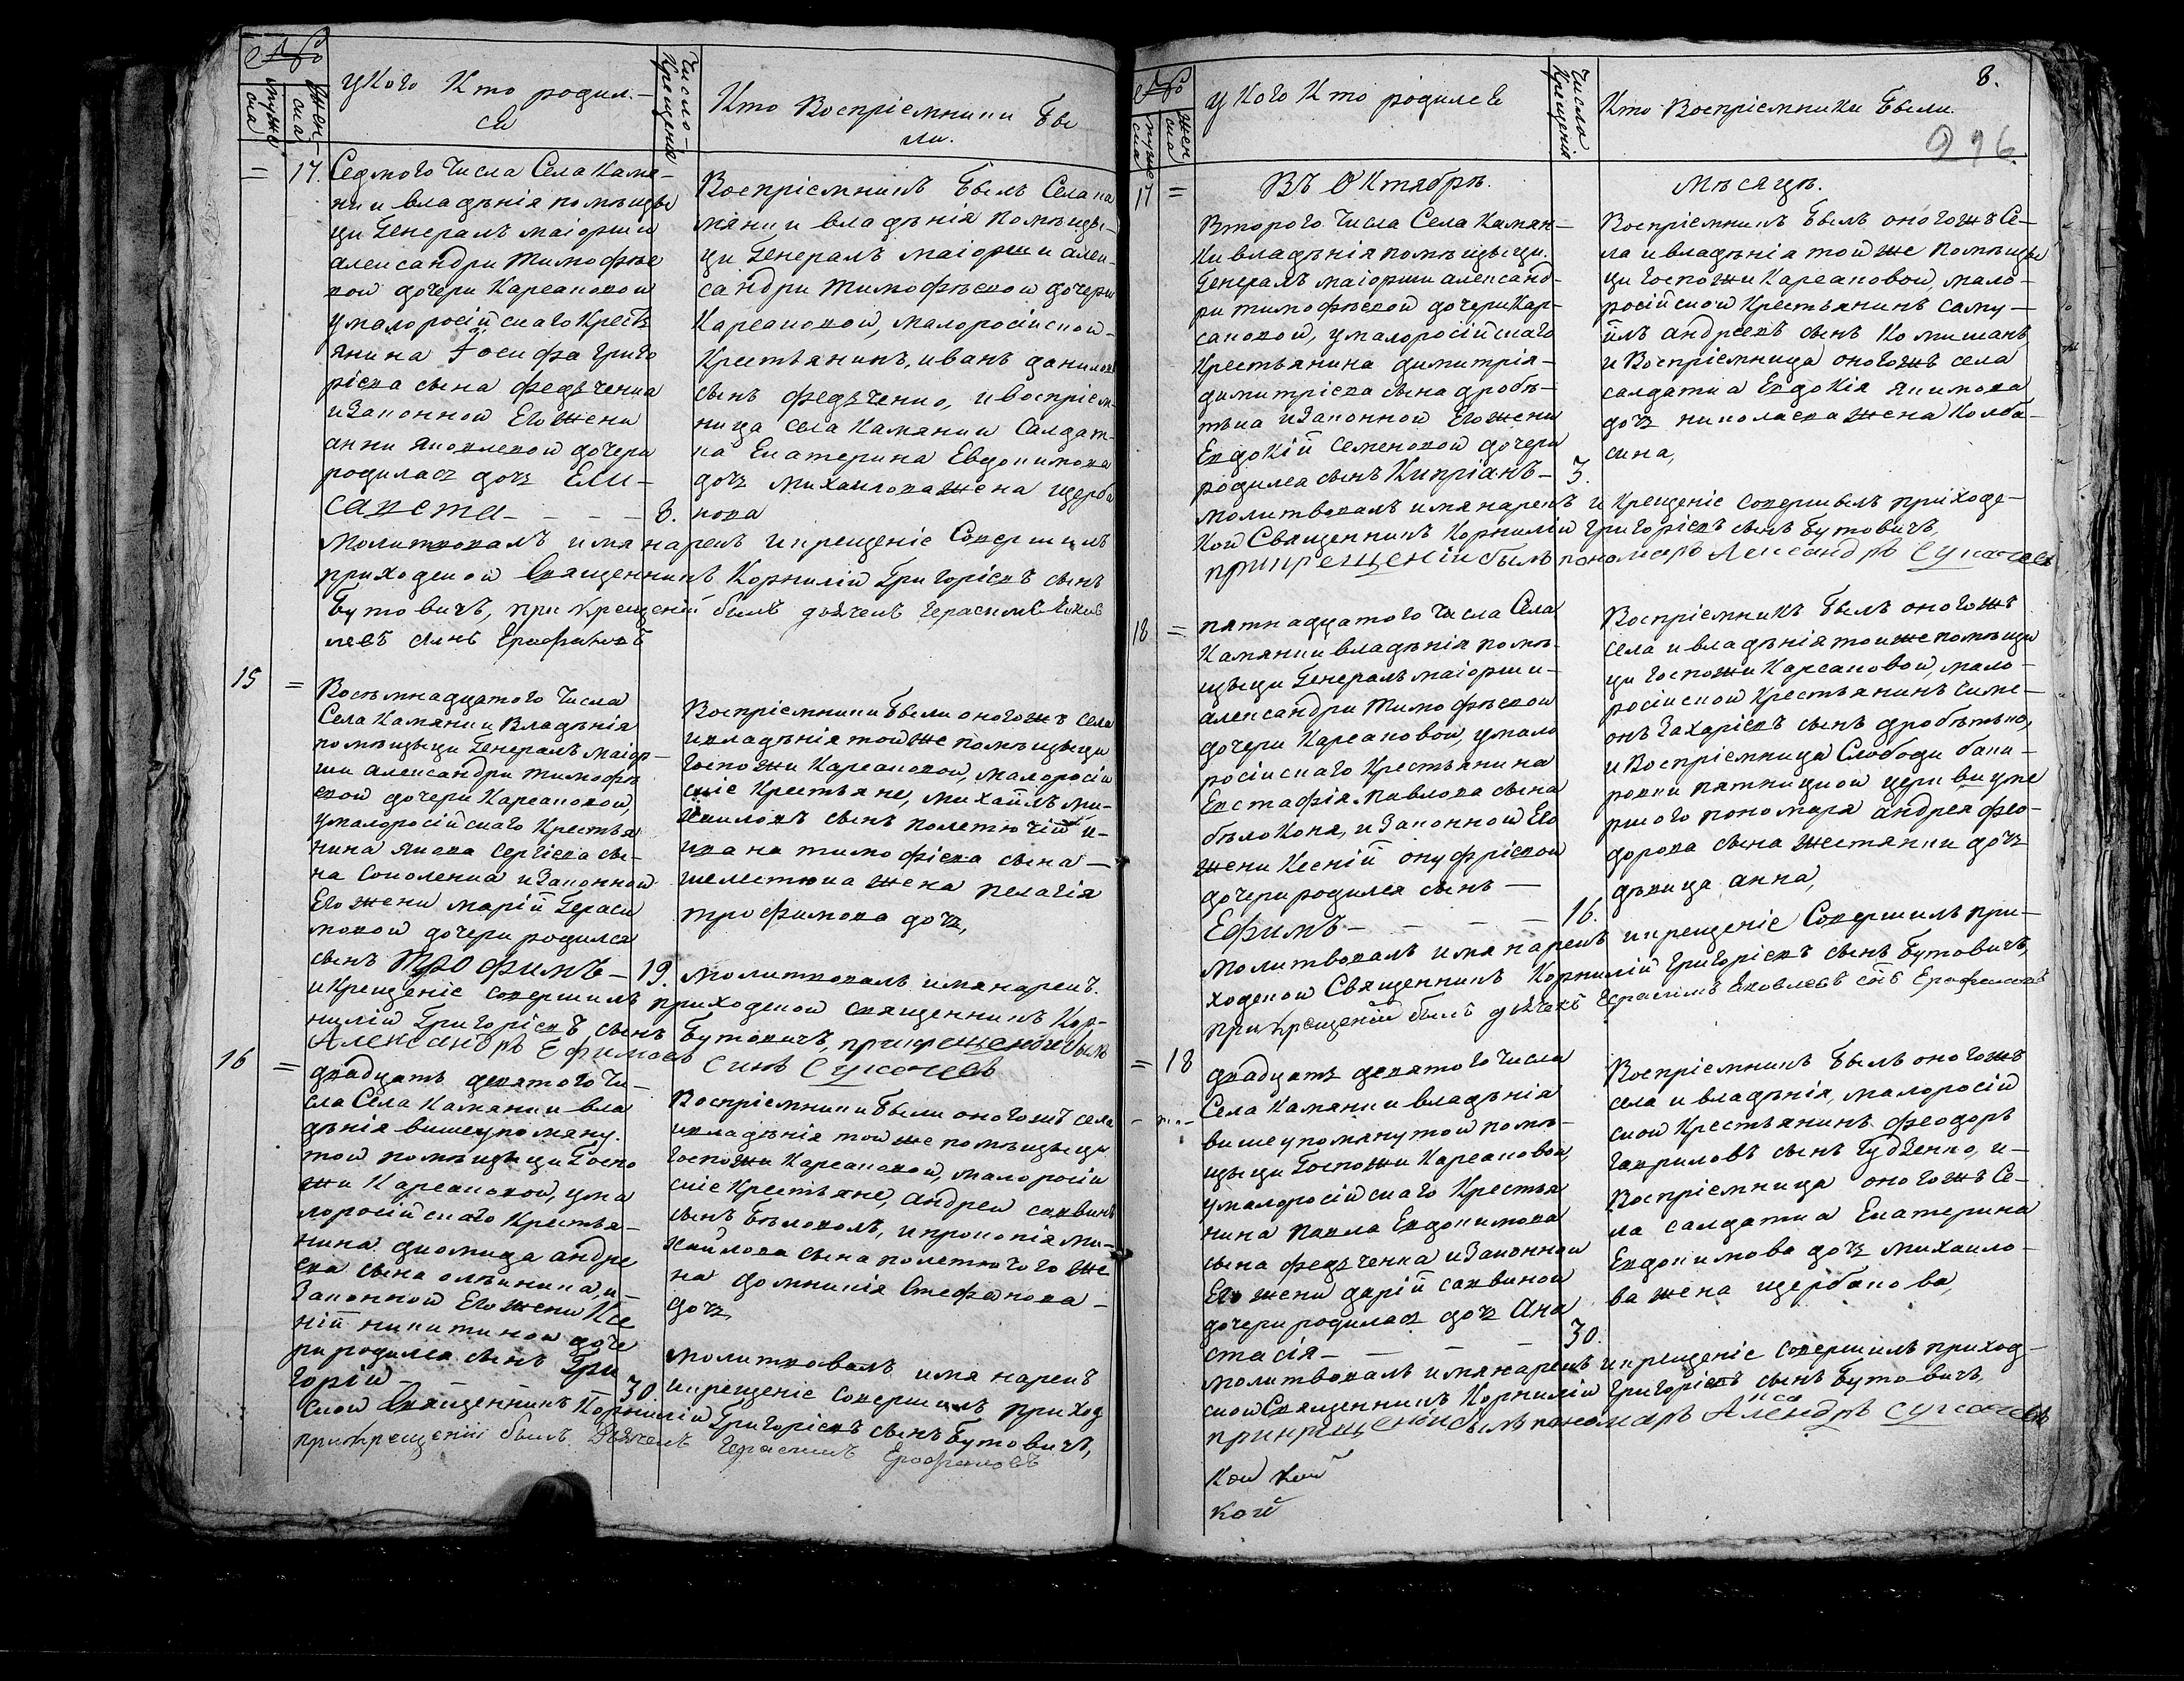 №
муже
ска
жен
ска
укого Кто родил-
ся
число
крещения
Кто Воспріемники бы
ли.
= 17.
Седмого числа Села Камя-
нки владѣнія помѣщи
ци Генералъ маіорши
александри тимофѣе
вой дочери Карсановой
умалоросійскаго крестъ
янина Іосифа григо
ріева сына федъченка
изаконной Его жени
анни яковлевой дочери
родилась дочь Ели-
савета - - - - 8.
Воспріемникъ былъ Села ка
мянки владѣнія помѣщи-
ци Генералъ маіорши алек-
сандри тимофѣевой дочери
Карсановой, малоросійской
Крестьянинъ, иванъ данилов
сынъ федъченко, ивоспріем-
ница села Камянки Салдат-
ка Екатерина Евдокимова
дочь михаилова жена щерба
кова
молитвовалъ имя нарекъ икрещеніе Совершилъ
приходской Священникъ Корнилій Григоріевъ сынъ
Бутовичъ, при крещеніи былъ дьячекъ Герасимъ Яков
левъ сынъ Ерофаловъ
15 =
Восъмнадцатого числа
Села Камянки Владѣнія
помѣщици Генералъ маіор-
ши александри тимофѣ
евой дочери Карсановой,
умалоросійскаго Крестья
нина якова сергіева сы-
на Соколенка изаконной
Его жени маріи Гераси
мовой дочери родился
сынъ Трофимъ - 19.
Воспріемники были оногожъ села
ивладѣнія тойже помѣщици
госпожи Карсановой, малоросій
скіе Крестьяне, михаилъ ми-
хаиловъ сынъ полетючій и-
ивана тимофіева сына -
шелетюка жена пелагія
трофимова дочь,
молитвовалъ имя нарекъ.
и Крещеніе совершилъ приходской священникъ Кор-
нилій Григоріевъ сынъ Бутовичъ, прикрещеніи былъ
Александръ Ефимовъ синъ Сукачевъ
16 =
двадцать девятого чи-
сла Села Камянки вла
дѣнія вишеупомяну.
той помѣщици Госпо
жи Карсановой, ума
лоросійскаго Крестья-
нина диомида андре
ева сына олѣиника, и-
законной Его жени Ксе
ніи никитиной доче
ри родился сынъ Гри
горій - 30
Воспріемники были оногожъ села
ивладѣнія тойже помѣщици
госпожи Карсановой, малоросій
скіе Крестьяне, андрей саввинъ
сынъ бѣлоконъ, ипрокопія ми-
хаилова сына полетючого же
на домникія Стефанова -
дочь,
молитвовалъ имя нарекъ
икрещеніе совершилъ приход
ской Священникъ Корнилій Григоріевъ сынъ Бутовичъ,
прикрещеніи былъ Дьячекъ Герасимъ Ерофаловъ
8.
996.
№
муже
ска
жен
ска
у Кого Кто родился
Число
крещенія
Кто Воспріемники были.
17 =
Въ Октябрѣ.
Мѣсяцѣ.
Второго числа Села Камян-
ки владѣнія помѣщици.
Генералъ маіорши александ-
ри тимофѣевой дочери Кар-
сановой, умалоросійскаго
Крестьянина димитрія-
димитріева сына дробѣ-
тька изаконной Его жени
Евдокіи семеновой дочери
родился сынъ Кипріанъ - 3.
Воспріемникъ былъ оногожъ Се-
ла ивладѣнія тойже помѣщи
ци госпожи Карсановой, мало-
російской Крестьянинъ саму-
илъ андреевъ сынъ Комишанъ,
и Воспріемница оногожъ села
салдатка Евдокія якимова
дочь николаева жена Колба-
сина,
молитвовалъ имя нарекъ и Крещеніе совершилъ приходс-
кой Священникъ Корнилій григоріевъ сынъ Бутовичъ,
прикрещеніи былъ пономарь Александръ Сукачевъ
18 =
пятнадцатого числа Села
Камянки владѣнія помѣ-
щици Генералъ маіорши-
александри тимофѣевой
дочери Карсановой, умало
російскаго Крестьянина
Евстафія павлова сына
бѣлоконя, изаконной Его
жени Ксеніи онуфріевой
дочери родился сынъ -
Ефимъ - - - 16.
Воспріемникъ былъ оногожъ
села ивладѣнія тойже помѣщи
ци госпожи Карсановой, мало-
російской Крестьянинъ симе-
онъ захаріевъ сынъ дробѣтько,
и Воспріемница Слободи бала-
ровки пятницкой церкви уме
ршого пономаря андрея фео-
дорова сына жестянки дочь
дѣвица анна,
молитвовалъ имя нарекъ икрещеніе Совершилъ при-
ходской Священникъ Корнилій григоріевъ сынъ Бутовичъ,
прикрещеніи былъ дьячекъ Герасимъ Яковлевъ сынъ Ерофаловъ
= 18
двадцать девятого числа
Села Камянки владѣнія
вишеупомянутой помѣ-
щици Госпожи Карсановой
умалоросійскаго Крестья
нина павла Евдокимова
сына федъченка изаконной
Его жени даріи саввиной
дочери родилась дочь Ана
стасія - - - 30.
Воспріемникъ былъ оногожъ
села и владѣнія, малоросій
ской Крестьянинъ феодоръ
гавриловъ сынъ Гудзенко, и-
Воспріемница оногожъ Се-
ла салдатка Екатерина
Евдокимова дочь михаило-
ва жена щербакова,
молитвовалъ имя нарекъ икрещеніе совершилъ приход-
ской Священникъ Корнилій григоріевъ сынъ Бутовичъ,
прикрещеніи былъ пономарь Александръ Сукачевъ
кой кой
кой